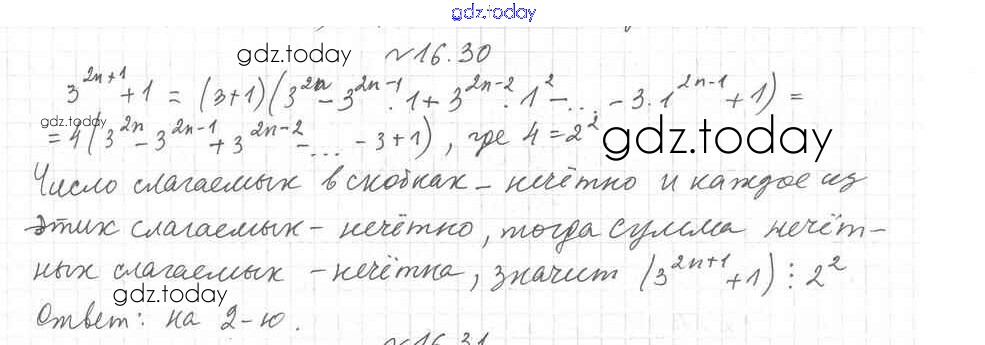 gdz.today
gdz.today
№16.30
3^{2n+1}+1 = (3+1)(3^{2n}-3^{2n-1}·1+3^{2n-2}·1^2-...-3·1^{2n-1}+1) =
gdz.today
= 4(3^{2n}-3^{2n-1}+3^{2n-2}-...-3+1), где 4=2^2
gdz.today
Число слагаемых в скобках - нечётно и каждое из
этих слагаемых - нечётно, тогда сумма нечёт-
ных слагаемых - нечётна, значит (3^{2n+1}+1)⋮2^2
gdz.today
Ответ: на 2-ю.
№16.31